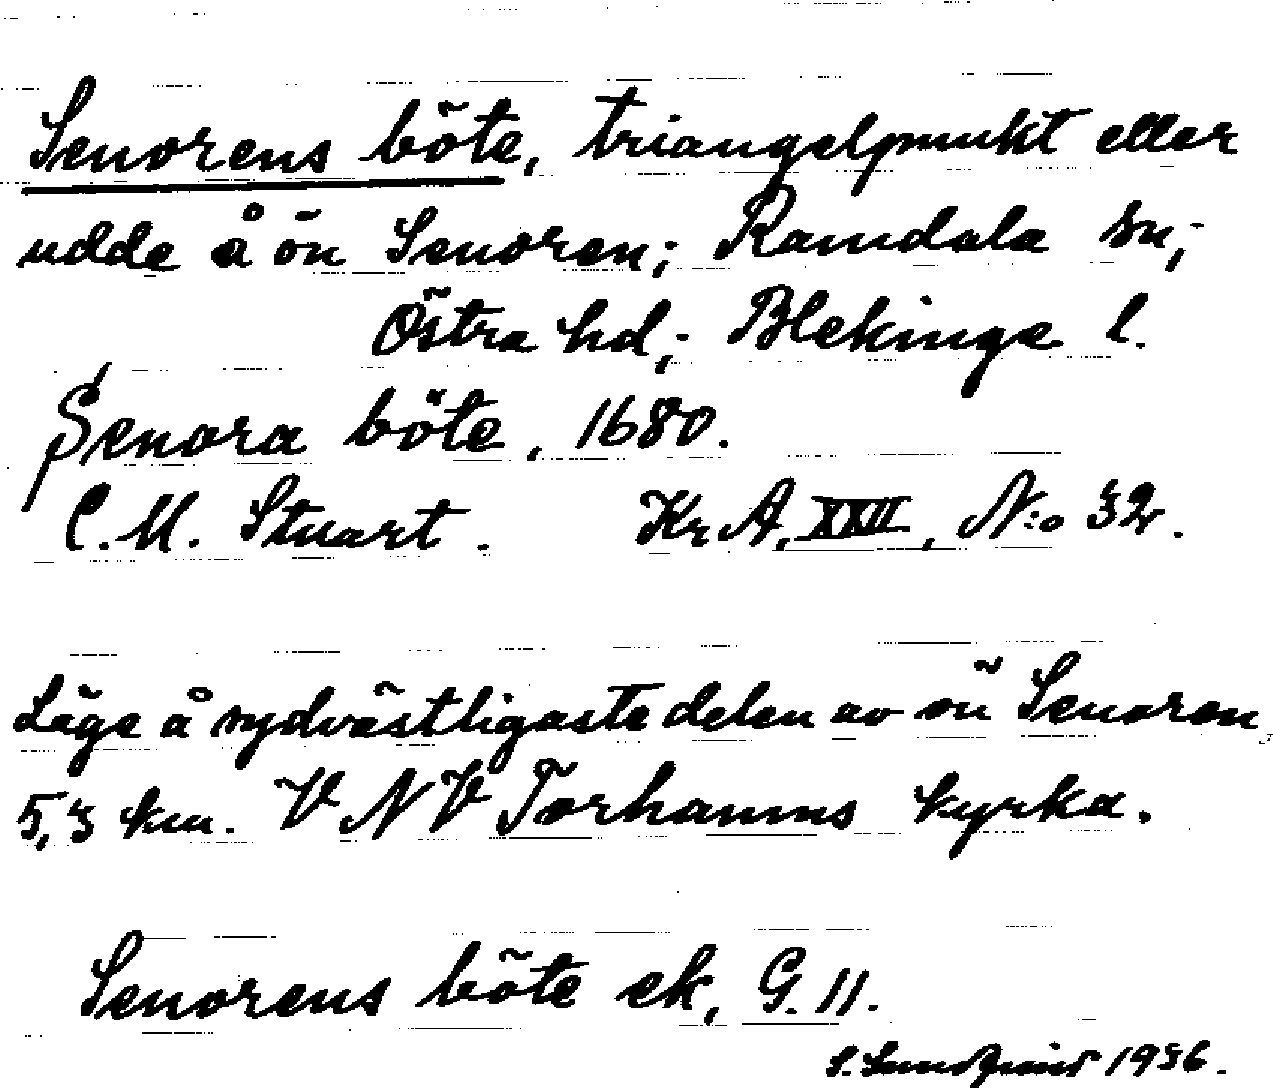 Senorens böte, triangelpunkt eller
udde å ön Senoren; Ramdala sn,-
Östra hd,- Blekinge l.
Senora böte, 1680.
C.M. Stuart. Kr A, XXII, N:o 32.
Läge å sydvästligaste delen av ön Senoren,
5,3 km. VNV Torhamns kyrka.
Senorens böte ek, G. 11.
S. 1956.